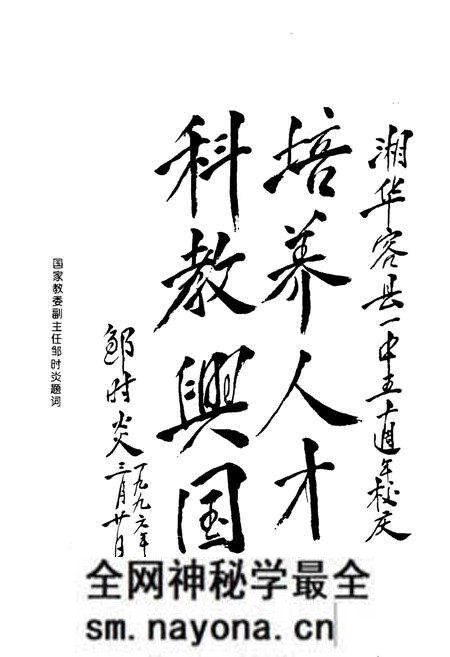 湘华容县一中五十週年校庆
培养人才
科教興国
邹时炎
一九九六年
三月廿日
国家教委副主任邹时炎题词
全网神秘学最全
sm.nayona.cn